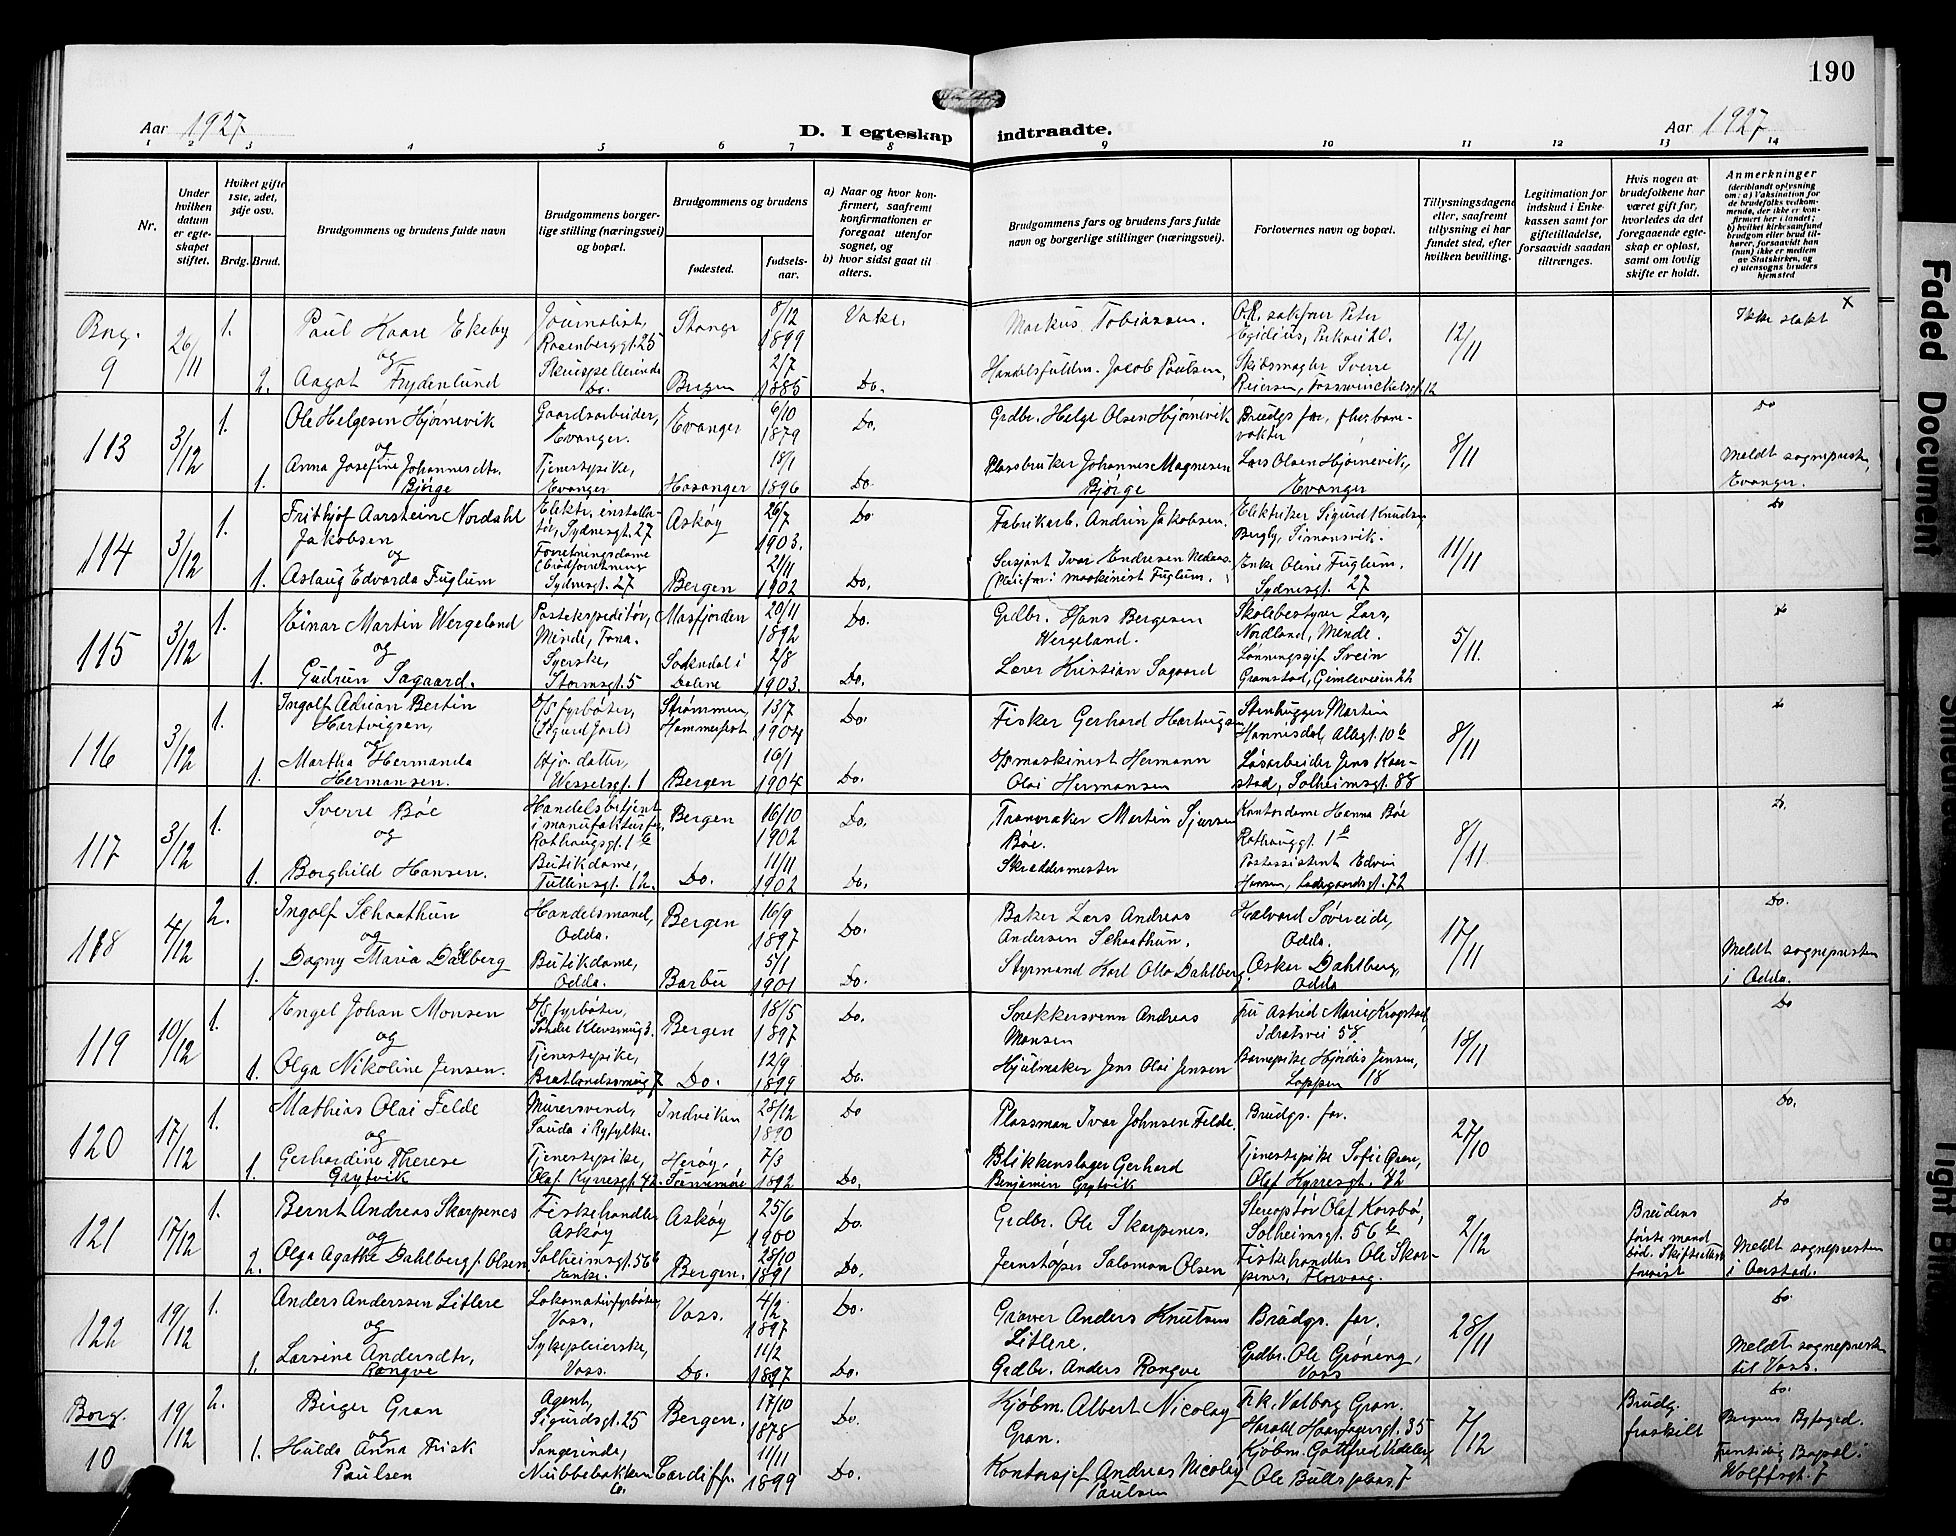 190
Aar 1927
D. I egteskap indtraadte.
Aar 1927
1 2 3 4 5 6 7 8 9 10 11 12 13 14
Nr.
Under hvilken datum er egteskapet stiftet.
Hviket gifte 1ste, 2det, 3dje osv.
Brdg. Brud.
Brudgommens og brudens fulde navn
Brudgommens borgerlige stilling (næringsvei) og bopæl.
Brudgommens og brudens
fødested.
fødselsaar.
a) Naar og hvor konfirmert, saafremt konfirmationen er foregaat utenfor sognet, og
b) hvor sidst gaat til alters.
Brudgommens fars og brudens fars fulde navn og borgerlige stillinger (næringsvei).
Forlovernes navn og bopæl.
Tillysningsdagene eller, saafremt tillysning ei har fundet sted, efter hvilken bevilling.
Legitimation for indskud i Enkekassen samt for giftetilladelse, forsaavidt saadan tiltrænges.
Hvis nogen av brudefolkene har været gift før, hvorledes da det foregaaende egteskap er opløst, samt om lovlig skifte er holdt.
Anmerkninger
(deriblandt oplysning om: a) Vaksination for de brudefolks vedkommende, der ikke er konfirmert her i landet; b) hvilket kirkesamfund brudgom eller brud tilhører, forsaavidt han (hun) ikke er medlem av Statskirken, og c) utensogns bruders hjemsted
Borg. 9
26/11
1.
Paul Kaare Ekeby
og
2. Aagot Frydenlund
Journalist,
Rosenberggt. 25
Skuespillerinde
Do.
Stange
Bergen
8/12 1899
2/7 1885
Do.
Markus Tobiassen.
Handelsfuldm. Jacob Paulsen,
O.R. sakfører Peter
Egidius, Parkvei 20.
Skibsmægler Sverre
Reiersen, Fosswinckelsgt. 12
12/11
Ikke slekt
x
113
3/12
1. Ole Helgesen Hjørnevik
og
1. Anna Josefine Johannesdtr.
Bjørge
Gaardsarbeider,
Evanger.
Tjenestepike,
Evanger
Evanger
Hosanger
6/10 1879
18/1 1896
Do.
Do.
Grdbr. Helge Olsen Hjørnevik
Plassbruker Johannes Magnesen
Bjørge
Brudgs far,
Lars Olsen Hjørnevik,
Evanger
8/11
Do
Meldt sognepresten
Evanger.
114
3/12
1. Frithjof Aarstein Nordahl
Jakobsen
og
1. Aslaug Edvarda Fuglum
Elektr. installatør, Sydnesgt. 27
Forretningsdame
Sydnesgt. 27
Askøy
Bergen
26/7 1903.
21/11 1902
Do
Do.
Fabrikarb. Andrin Jakobsen.
Sersjant Ivar Endresen
Elektriker Sigurd Knudsen
Bergly, Simonsvik.
Enke Oline Fuglum.
Sydnesgt. 27
11/11
Do
115
3/12
1. Einar Martin Wergeland
og
1. Gudrun Sagaard.
Postekspeditør,
Minde, Fana.
Syerske,
Stormsgt. 5
Masfjorden
Sokndal i
Dalene
20/11 1892
2/8 1903.
Do.
Do.
Grdbr. Hans Bergesen
Wergeland.
Lærer Kristian Sagaard
Skolebestyrer Lars
Nordland, Minde.
Lønningssjef Svein
Gramstad, Gimleveien 22
5/11.
Do
116
3/12
1. Ingolf Adrian Bertin
Hartvigsen,
og
1. Martha Hermanda
Hermansen.
D/S fyrbøter,
(Sigurd Jarl)
Hjv. datter,
Wesselsgt. 1
Strømmen,
Hammerfest
Bergen
13/7 1904
16/1 1904
Do.
Do.
Fisker Gerhard Hartvigsen
D/S maskinist Hermann
Olai Hermansen
Stenhugger Martin
Hannisdal, Allegt. 10 b
Løsarbeider Jens Kaarstad, Solheimsgt. 88
8/11
Do
117
3/12
1. Sverre Bøe
og
1. Borghild Hansen.
Handelsbetjent
i manufakturfor.
Rothaugsgt. 1 b
Butikdame,
Tullinsgt. 12.
Bergen
Do.
16/10 1902
11/11 1902
Do.
Do.
Tranvraker Martin Sjursen
Bøe.
Skræddermester
Kontordame Hanna Bøe
Rothauggt 1 b
Postassistent Edvin
Hansen, Ladegaardsgt. 72
8/11.
Do.
118
4/12
2. Ingolf Schaathun
og
1. Dagny Maria Dahlberg
Handelsmand,
Odda.
Butikdame,
Odda.
Bergen
Barbu
16/9 1897
5/1 1901
Do.
Do.
Baker Lars Andreas
Andersen Schaathun.
Styrmand Karl Otto Dahlberg
Halvard Søvereide,
Odda.
Asker Dahlberg,
Odda
17/11
Do.
Meldt sognepresten
i Odda.
119
10/12
1. Engel Johan Monsen
og
1. Olga Nikoline Jensen.
D/S fyrbøter,
Søndre Klevsmug 3.
Tjenestepike,
Bratlandssmug 7
Bergen
Do.
18/5 1897
12/9 1899
Do.
Do.
Snekkersvenn Andreas
Monsen
Hjulmaker Jens Olai Jensen
Fru Astrid Marie Krogstad,
Idrætsvei 58.
Barnepike Hjørdis Jensen,
Loppen 18
18/11
Do
120
17/12
1. Mathias Olai Felde
og
1. Gerhardine Therese
Grytvik
Murersvend,
Sauda i Ryfylke.
Tjenestepike,
Olaf Kyrresgt. 42.
Indviken
Herøy,
28/12 1890
7/3 1892
Do
Do.
Plassman Ivar Johnsen Felde.
Blikkenslager Gerhard
Benjamin Grytvik
Brudgs. far.
Tjenestepike Sofie
Olaf Kyrresgt. 42
27/10
Do.
121
17/12
1. Bernt Andreas Skarpenes
og
2. Olga Agathe Dahlberg f. Olsen
Fiskehandler
Askøy
Solheimsgt. 56 b
Enke.
Askøy
Bergen.
25/6 1900
28/10 1891
Do.
Do.
Grdbr. Ole Skarpenes.
Jernstøper Salomon Olsen
Stereoptør Olaf Korsbø,
Solheimsgt. 56 b
Fiskehandler Ole Skarpenes, Florvaag.
2/12
Brudens
første mand
død. Skifteattest
forevist
Do
Meldt sognepresten
i Aarstad.
122
19/12
1. Anders Anderssen Litlere
og
1. Larsine Andersdtr,
Rongve
Lokomotivfyrbøter
Voss.
Sykepleierske,
Voss.
Voss.
Do.
4/2 1897
11/2 1897
Do.
Do.
Graver Anders Knutsen
Litlere.
Grdbr. Anders Rongve
Brudgs. far.
Grdbr. Ole Grøneng,
Voss
28/11
Do.
Meldt sognepresten
til Voss.
Borg. 10
19/12
2. Birger Gran
og
1. Hulda Anna Frisk
Paulsen
Agent,
Sigurdsgt. 25
Sangerinde,
Nubbebakken
6.
Bergen.
Cardiff.
17/10 1878
11/11 1899
Do.
Do.
Kjøbm. Albert Nicolay
Gran.
Kontorsjef Andreas Nicolay
Paulsen
Frk. Valborg Gran.
Harald Haarfagersgt. 35
Kjøbm. Gottfred
Ole Bullsplass 7
7/12
Brudg.
fraskilt
Do.
Bergens Byfoged.
Fremtidig Bopæl:
Wolffsgt. 7
Faded Document
Tight Bin